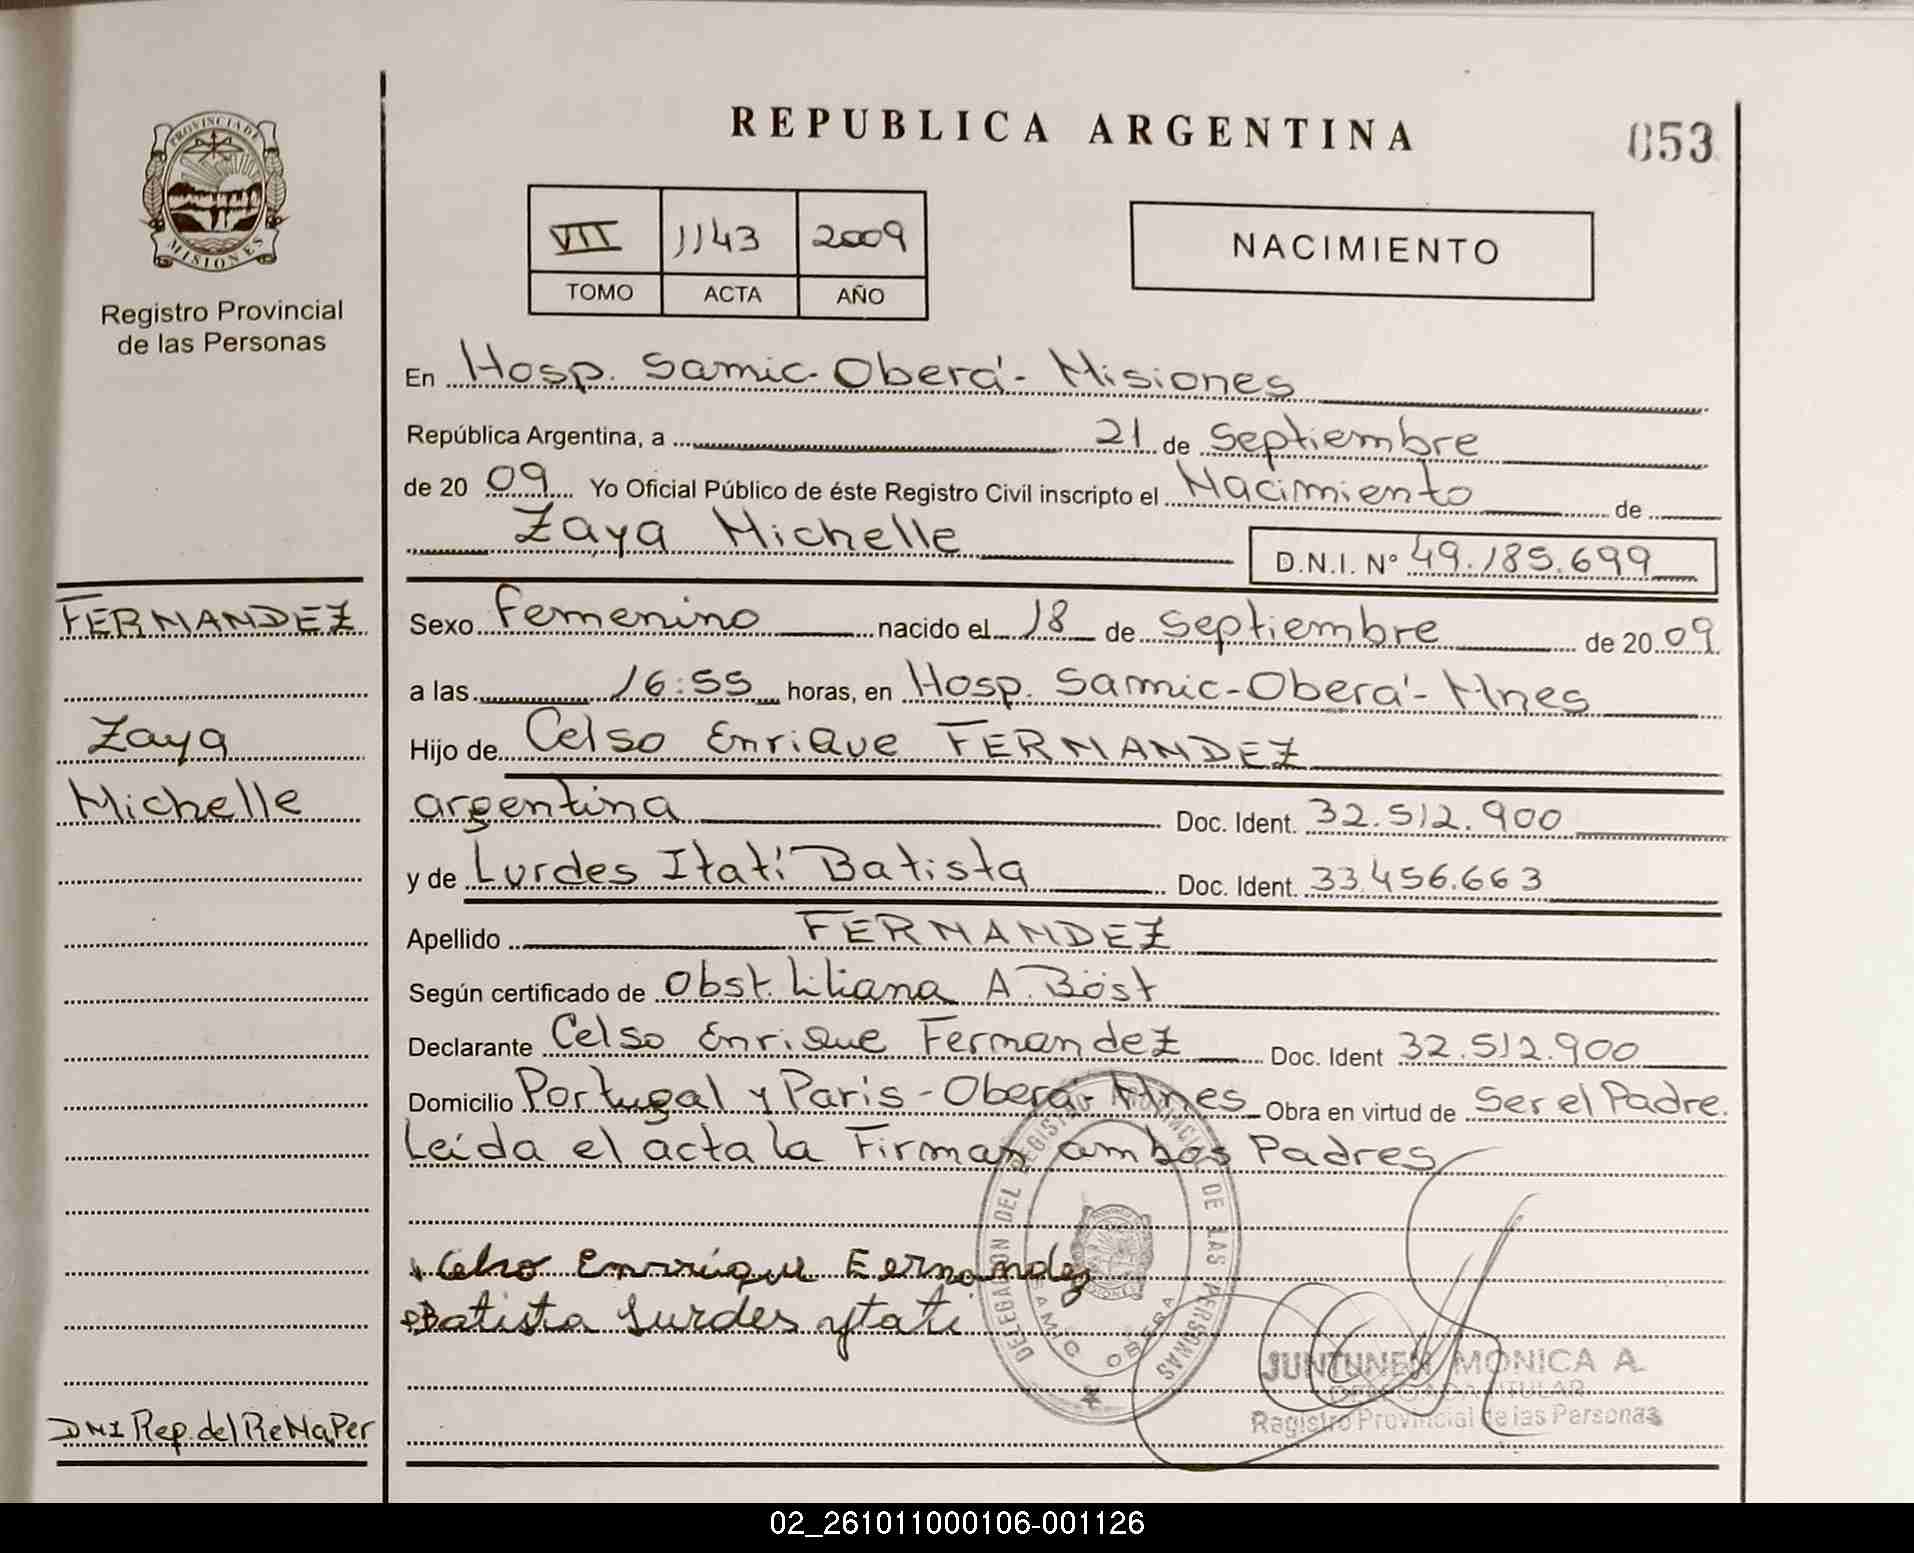 REPUBLICA ARGENTINA
053
PROVINCIA DE
MISIONES
Registro Provincial
de las Personas
VII 1143 2009
TOMO ACTA AÑO
NACIMIENTO
En Hosp. Samic-Oberá-Misiones
República Argentina, a 21 de Septiembre
de 20 09 Yo Oficial Público de éste Registro Civil inscripto el Nacimiento de
Zaya Michelle D.N.I. Nº 49.185.699
FERNANDEZ
Zaya
Michelle
Sexo Femenino nacido el 18 de Septiembre de 20 09
a las 16:55 horas, en Hosp. Samic-Oberá-Mnes
Hijo de Celso Enrique FERNANDEZ
argentina Doc. Ident. 32.512.900
y de Lurdes Itatí Batista Doc. Ident. 33.456.663
Apellido FERNANDEZ
Según certificado de Obst. Liliana A. Böst
Declarante Celso Enrique Fernandez Doc. Ident 32.512.900
Domicilio Portugal y Paris-Oberá-Mnes Obra en virtud de Ser el Padre.
Leída el acta la Firman ambos Padres
Celso Enrrique Fernandez
Batista Lurdes ytati
DELEGACION DEL REGISTRO PROVINCIAL DE LAS PERSONAS
SAMIC OBERA
JUNTUNEN MONICA A.
DELEGADA TITULAR
Registro Provincial de las Personas
DNI Rep. del ReNaPer
02_261011000106-001126